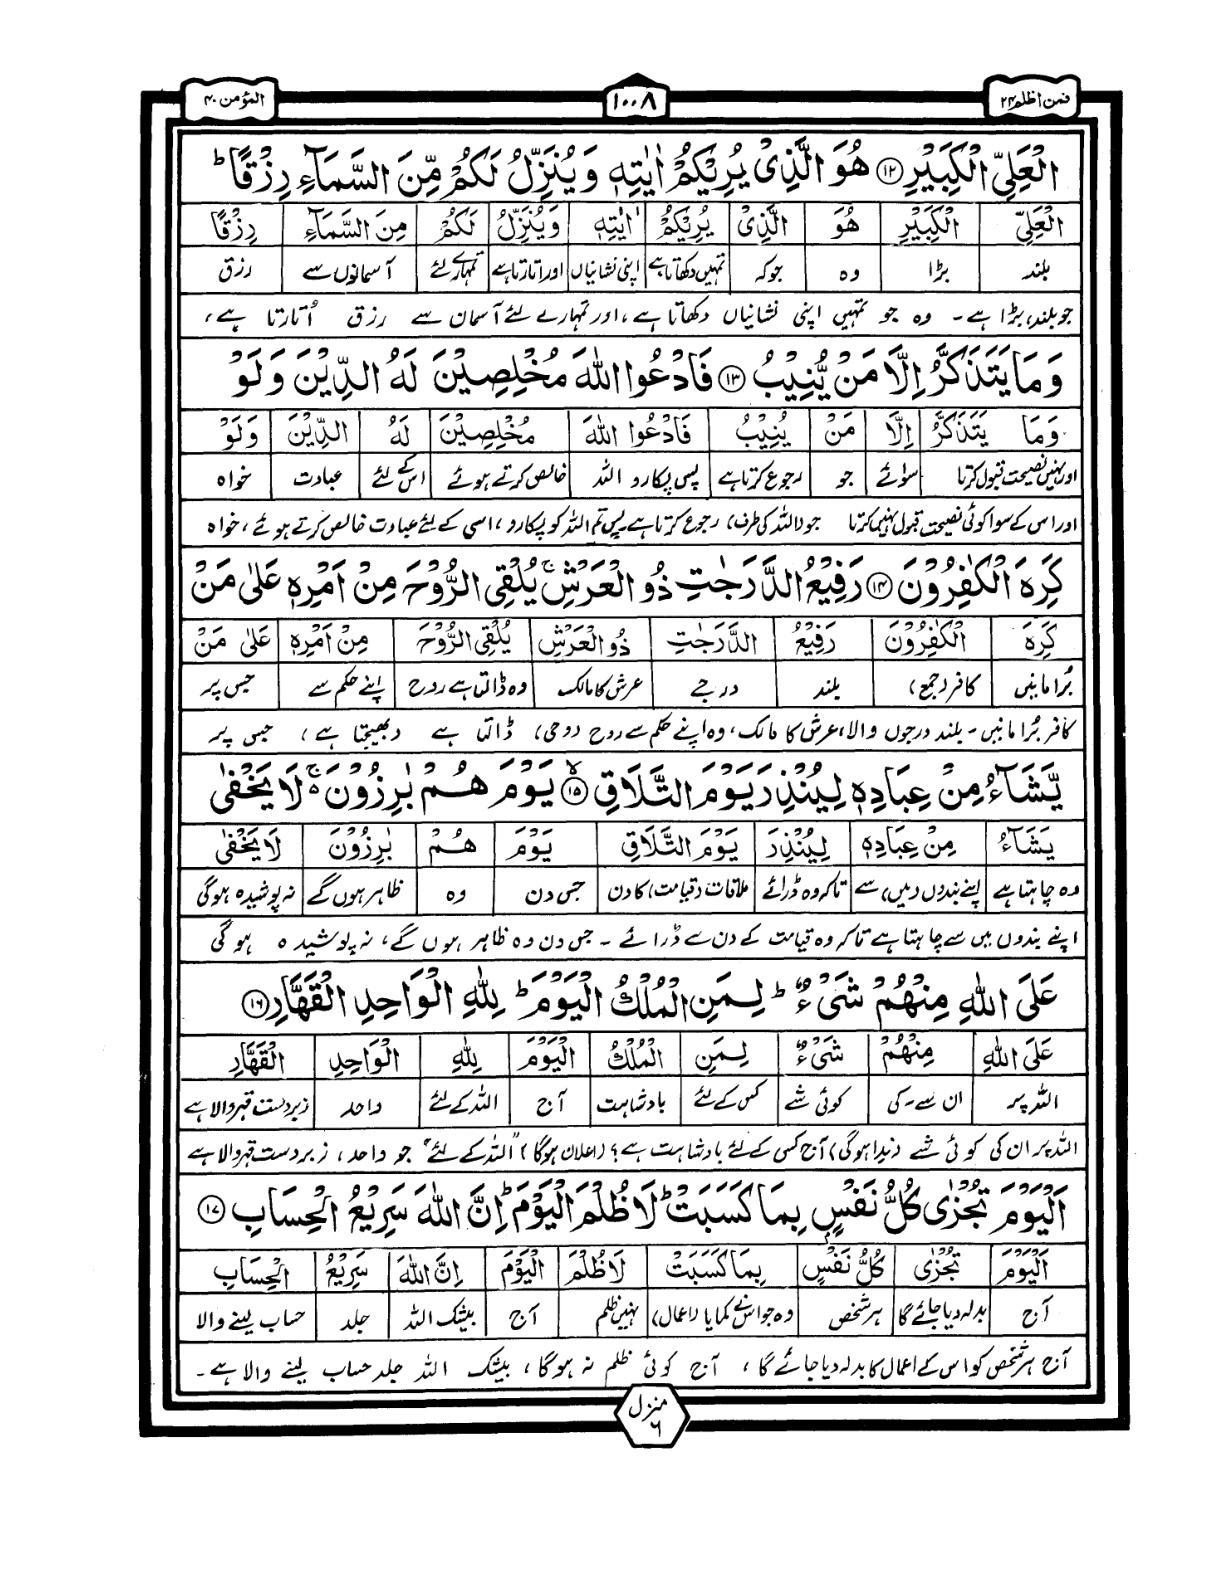 فمن اظلم ۲۴ ۱۰۰۸ المؤمن ۴۰
الْعَلِيِّ الْكَبِيْرِ ۱۲ هُوَ الَّذِيْ يُرِيْكُمْ اٰيٰتِهٖ وَيُنَزِّلُ لَكُمْ مِّنَ السَّمَآءِ رِزْقًا ؕ
الْعَلِيِّ الْكَبِيْرِ هُوَ الَّذِيْ يُرِيْكُمْ اٰيٰتِهٖ وَيُنَزِّلُ لَكُمْ مِنَ السَّمَآءِ رِزْقًا
بلند بڑا وہ جو کہ تمہیں دکھاتا ہے اپنی نشانیاں اور اتارتا ہے تمہارے لئے آسمانوں سے رزق
جو بلند، بڑا ہے۔ وہ جو تمہیں اپنی نشانیاں دکھاتا ہے، اور تمہارے لئے آسمان سے رزق اُتارتا ہے،
وَمَا يَتَذَكَّرُ اِلَّا مَنْ يُّنِيْبُ ۱۳ فَادْعُوا اللّٰهَ مُخْلِصِيْنَ لَهُ الدِّيْنَ وَلَوْ
وَمَا يَتَذَكَّرُ اِلَّا مَنْ يُنِيْبُ فَادْعُوا اللّٰهَ مُخْلِصِيْنَ لَهُ الدِّيْنَ وَلَوْ
اور نہیں نصیحت قبول کرتا سوائے جو رجوع کرتا ہے پس پکارو اللہ خالص کرتے ہوئے اس کے لئے عبادت خواہ
اور اس کے سوا کوئی نصیحت قبول نہیں کرتا جو (اللہ کی طرف) رجوع کرتا ہے پس تم اللہ کو پکارو، اسی کے لئے عبادت خالص کرتے ہوئے، خواہ
كَرِهَ الْكٰفِرُوْنَ ۱۴ رَفِيْعُ الدَّرَجٰتِ ذُو الْعَرْشِ ۚ يُلْقِي الرُّوْحَ مِنْ اَمْرِهٖ عَلٰى مَنْ
كَرِهَ الْكٰفِرُوْنَ رَفِيْعُ الدَّرَجٰتِ ذُو الْعَرْشِ يُلْقِي الرُّوْحَ مِنْ اَمْرِهٖ عَلٰى مَنْ
بُرا مانیں کافر (جمع) بلند درجے عرش کا مالک وہ ڈالتا ہے روح اپنے حکم سے جس پر
کافر بُرا مانیں۔ بلند درجوں والا، عرش کا مالک، وہ اپنے حکم سے روح (وحی) ڈالتا ہے (بھیجتا ہے) جس پر
يَّشَآءُ مِنْ عِبَادِهٖ لِيُنْذِرَ يَوْمَ التَّلَاقِ ۱۵ۙ يَوْمَ هُمْ بٰرِزُوْنَ ۚ لَا يَخْفٰى
يَشَآءُ مِنْ عِبَادِهٖ لِيُنْذِرَ يَوْمَ التَّلَاقِ يَوْمَ هُمْ بٰرِزُوْنَ لَا يَخْفٰى
وہ چاہتا ہے اپنے بندوں (میں) سے تاکہ وہ ڈرائے ملاقات (قیامت) کا دن جس دن وہ ظاہر ہوں گے نہ پوشیدہ ہوگی
اپنے بندوں میں سے چاہتا ہے تاکہ وہ قیامت کے دن سے ڈرائے۔ جس دن وہ ظاہر ہوں گے، نہ پوشیدہ ہوگی
عَلَى اللّٰهِ مِنْهُمْ شَيْءٌ ؕ لِمَنِ الْمُلْكُ الْيَوْمَ ؕ لِلّٰهِ الْوَاحِدِ الْقَهَّارِ ۱۶
عَلَى اللّٰهِ مِنْهُمْ شَيْءٌ لِمَنِ الْمُلْكُ الْيَوْمَ لِلّٰهِ الْوَاحِدِ الْقَهَّارِ
اللہ پر ان سے۔کی کوئی شے کس کے لئے بادشاہت آج اللہ کے لئے واحد زبردست قہر والا ہے
اللہ پر ان کی کوئی شے (ندا ہوگی) آج کس کے لئے بادشاہت ہے؟ (اعلان ہوگا) "اللہ کے لئے" جو واحد، زبردست قہر والا ہے
اَلْيَوْمَ تُجْزٰى كُلُّ نَفْسٍ بِمَا كَسَبَتْ ؕ لَا ظُلْمَ الْيَوْمَ ؕ اِنَّ اللّٰهَ سَرِيْعُ الْحِسَابِ ۱۷
اَلْيَوْمَ تُجْزٰى كُلُّ نَفْسٍ بِمَا كَسَبَتْ لَا ظُلْمَ الْيَوْمَ اِنَّ اللّٰهَ سَرِيْعُ الْحِسَابِ
آج بدلہ دیا جائے گا ہر شخص وہ جو اس نے کمایا (اعمال) نہیں ظلم آج بیشک اللہ جلد حساب لینے والا
آج ہر شخص کو اس کے اعمال کا بدلہ دیا جائے گا، آج کوئی ظلم نہ ہوگا، بیشک اللہ جلد حساب لینے والا ہے۔
منزل ۶